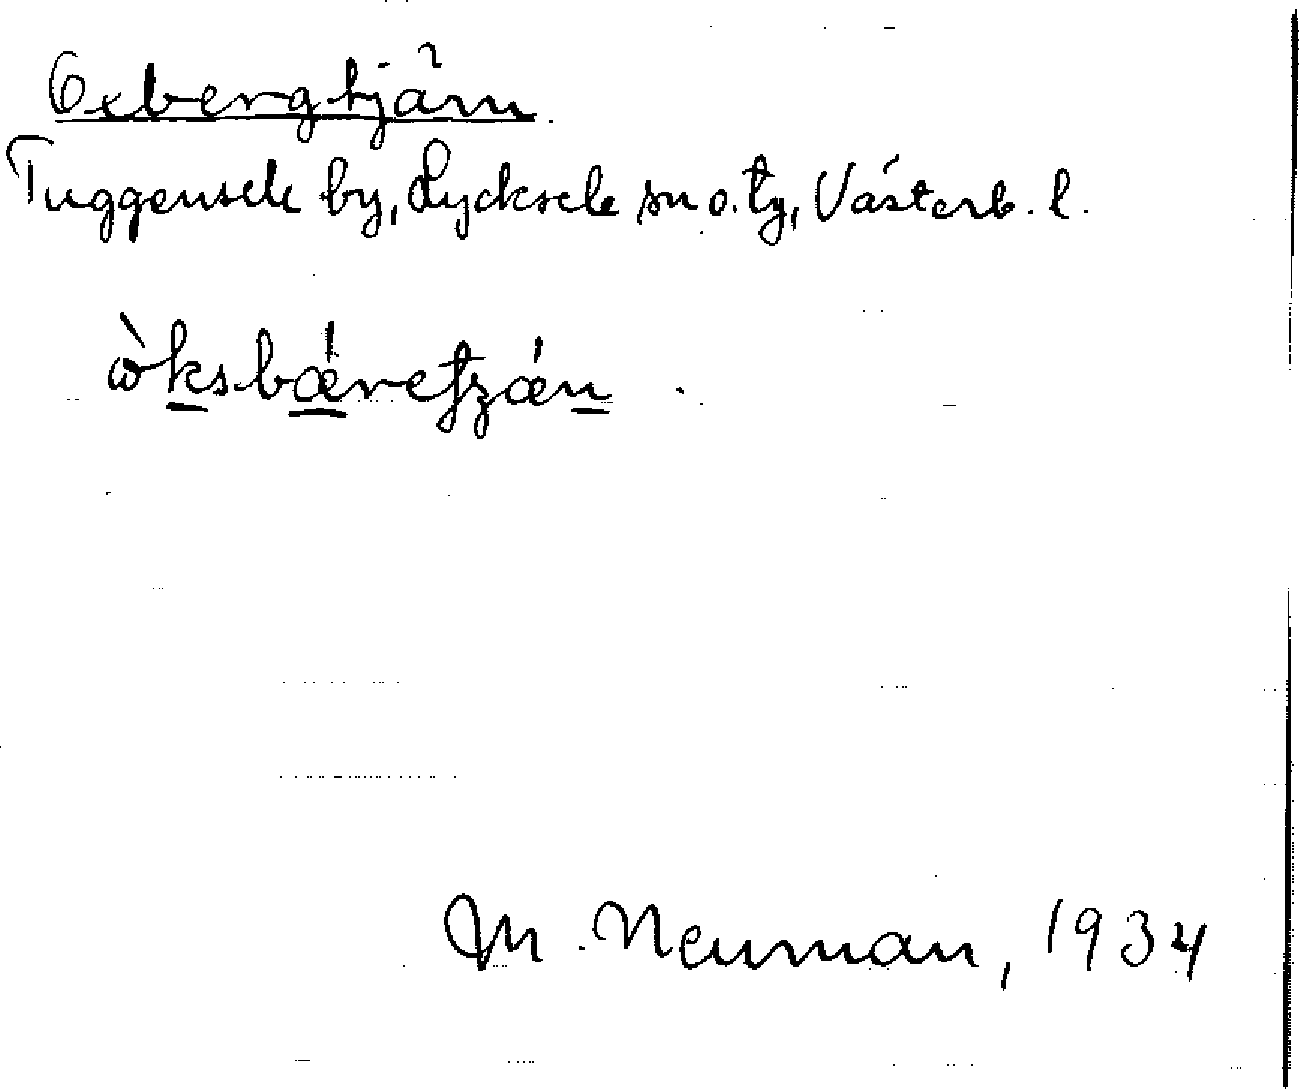 Oxbergtjärn
Tuggensele by, Lycksele sn o. tg, Västerb. l.
M. Neuman, 1934